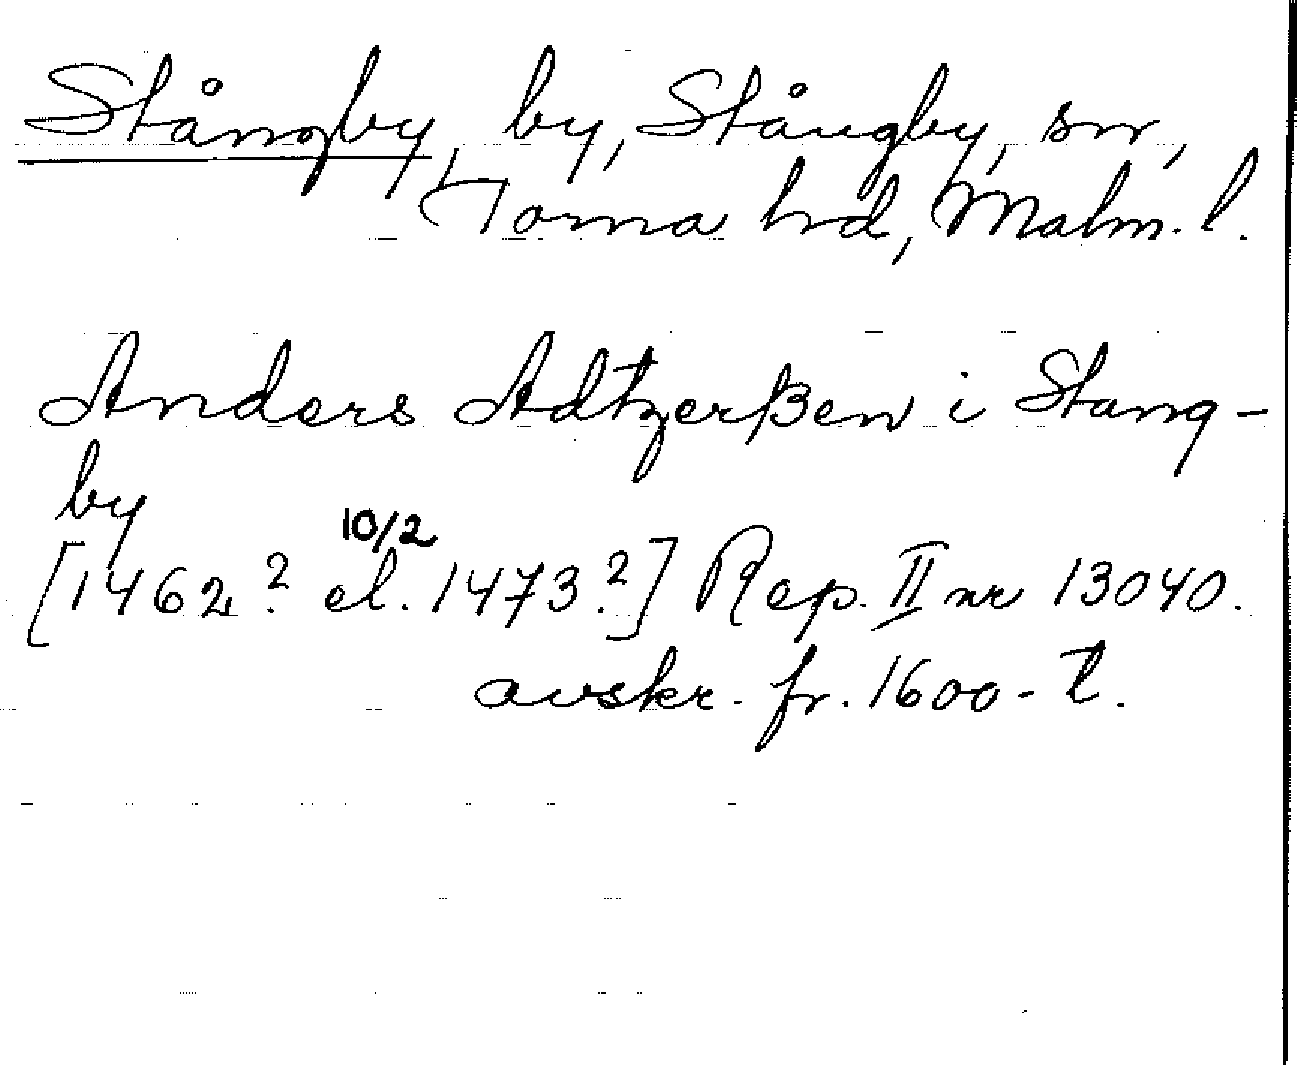 Stångby, by, Stångby, sn,
Torna hrd, Malm. l.
Anders Adtzerßen i Stang-
by
10/2
[1462? el. 1473?] Rep. II nr 13040.
avskr. fr. 1600-t.